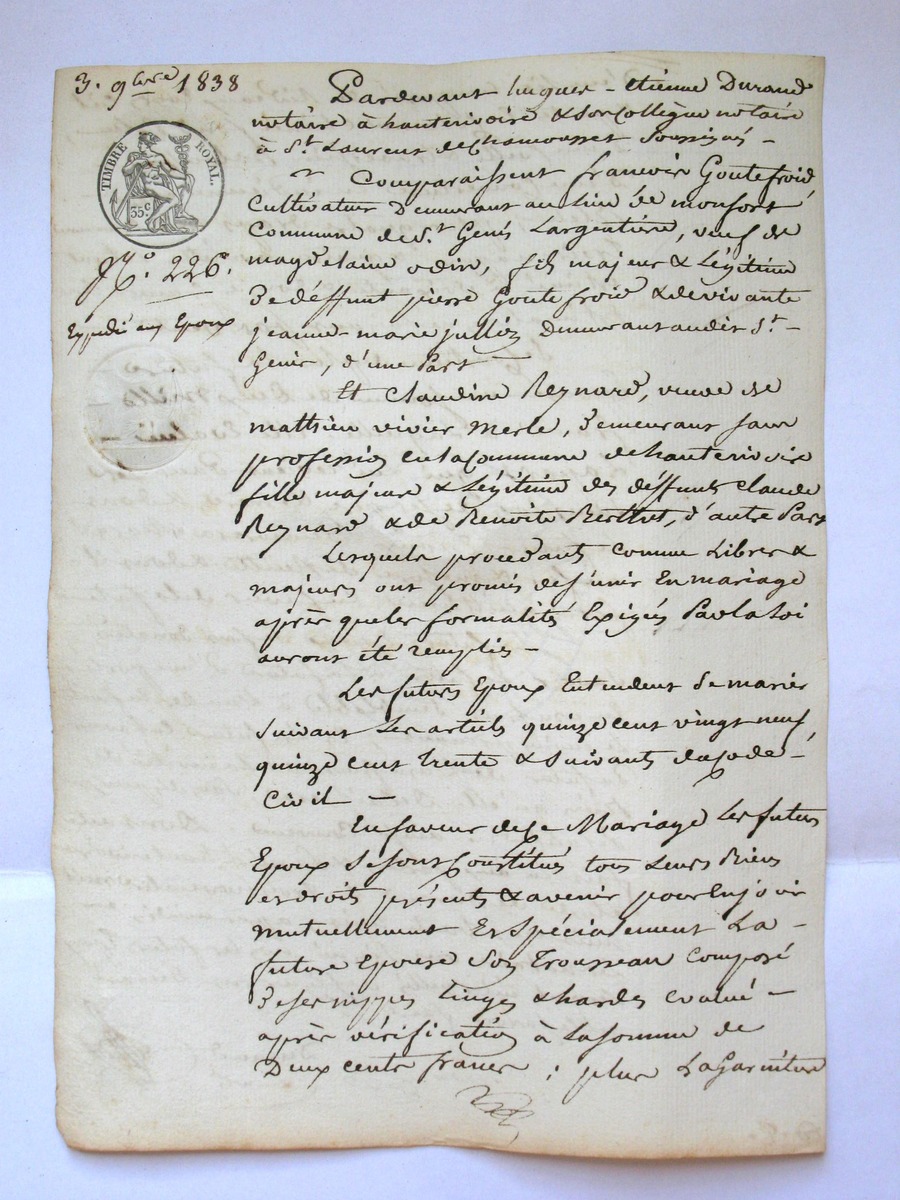 3. 9bre 1838
TIMBRE ROYAL.
35 c
N.o 226.
Expédié aux Epoux
Pardevant hugues - étienne Durand
notaire à hauterivoire & Son Collègue notaire
à St. Laurent de Chamousset Soussignés -
Comparaissent francois Goutefroid,
Cultivateur Demeurant au Lieu de monfort
Commune de St. Genis Largentière, veuf de
magdelaine odin, fils majeur & Légitime
de déffunt pierre Goutefroid & de vivante
jeanne-marie jullien Demeurant audit St. -
Genis, d'une Part
Et Claudine Reynard, veuve de
mathieu vivier merle, demeurant sans
profession en la Commune de hauterivoire
fille majeure & Légitime des déffunts Claude
Reynard & de Benoite Berthet, d'autre Part
Lesquels procedants comme Libres &
majeurs ont promis de s'unir En mariage
après que les formalités Exigées Par la Loi
auront été remplies -
Les futurs Epoux Entendent Se marier
Suivant Les articles quinze cent vingt neuf
quinze cent trente & suivants du Code -
Civil -
En faveur de Ce Mariage Les futurs
Epoux Se sont Constitués tous Leurs Biens
et droits présents & avenir pour En jouir
mutuellement Et Spécialement La -
future Epouse Son Trousseau Composé
de ses nippes Linges & hardes évalué -
après vérification à La Somme de
Deux cents francs ; plus La Garniture